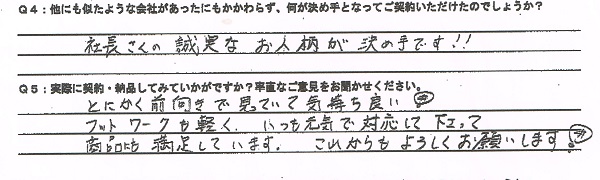 Q4：他にも似たような会社があったにもかかわらず、何が決め手となってご契約いただけたのでしょうか？
社長さんの誠実なお人柄が決め手です!!
Q5：実際に契約・納品してみていかがですか？率直なご意見をお聞かせください。
とにかく前向きで見ていて気持ち良い
フットワークも軽く、いつも元気で対応して下さって
商品にも満足しています。これからもよろしくお願いします!